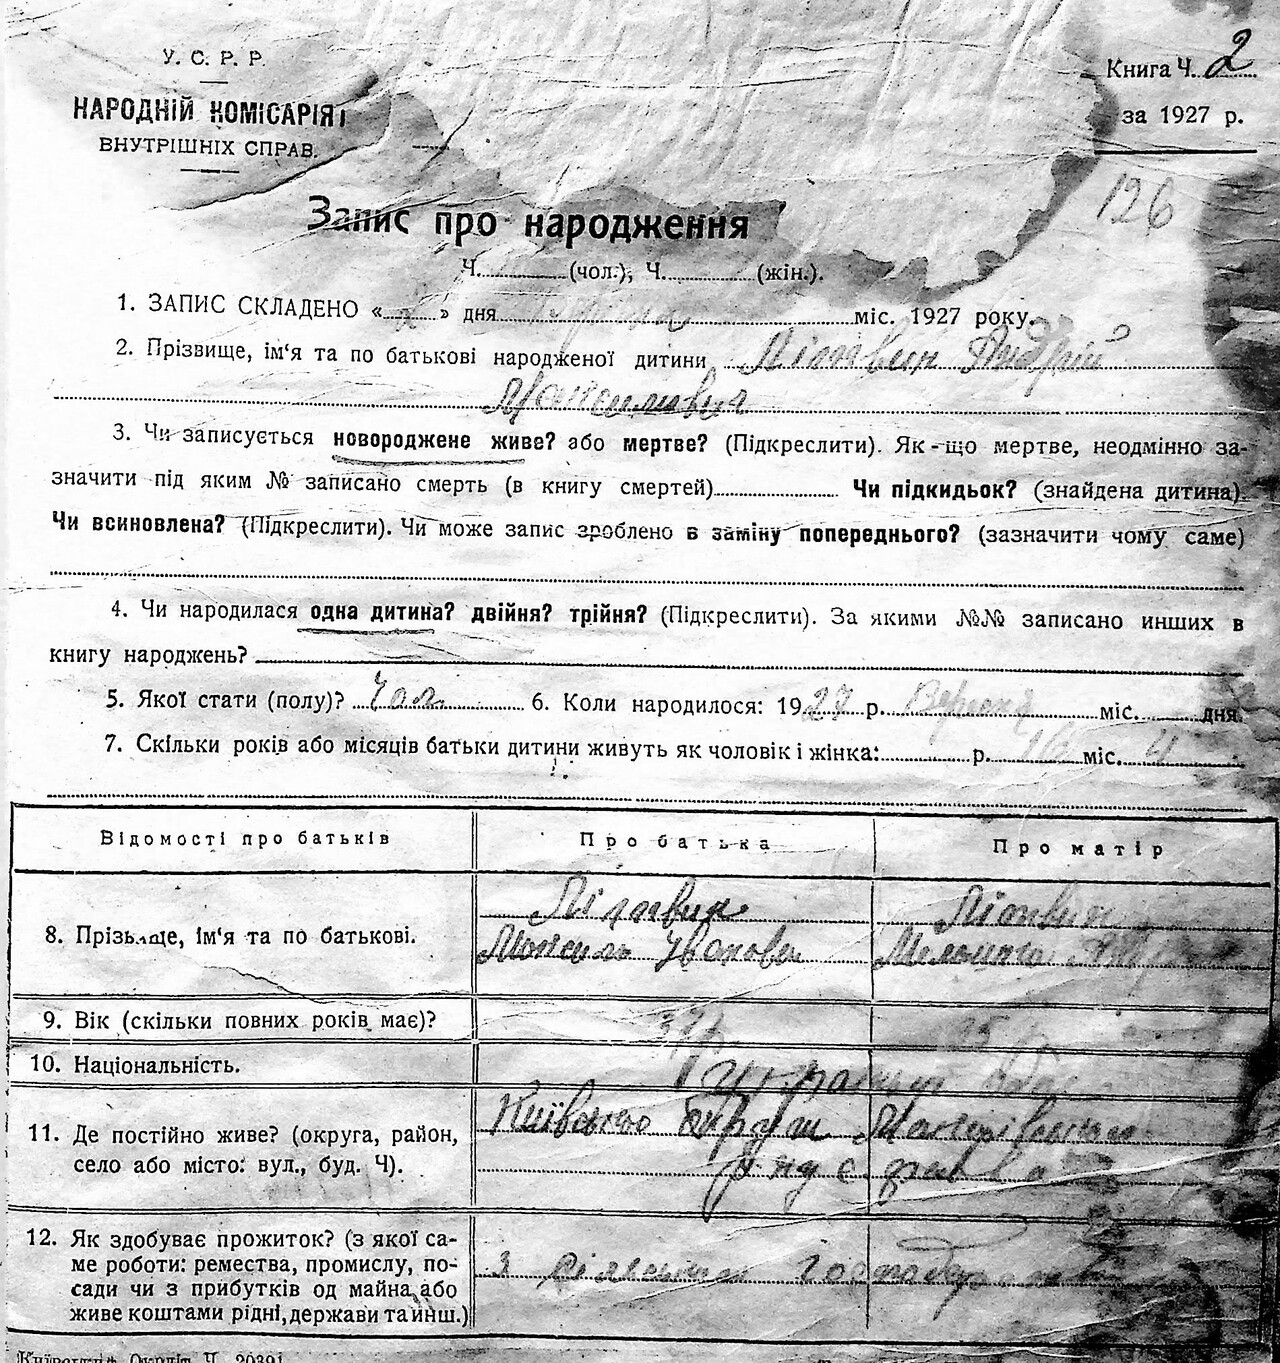 У. С. Р. Р.
НАРОДНІЙ КОМІСАРІЯТ
ВНУТРІШНІХ СПРАВ.
Книга Ч. 2
за 1927 р.
126
Запис про народження
Ч. (чол.), Ч. (жін.).
1. ЗАПИС СКЛАДЕНО « » дня міс. 1927 року.
2. Прізвище, ім‘я та по батькові народженої дитини Літвин Андрій
Максимович
3. Чи записується новороджене живе? або мертве? (Підкреслити). Як-що мертве, неодмінно за-
значити під яким № записано смерть (в книгу смертей) Чи підкидьок? (знайдена дитина).
Чи всиновлена? (Підкреслити). Чи може запис зроблено в заміну попереднього? (зазначити чому саме)
4. Чи народилася одна дитина? двійня? трійня? (Підкреслити). За якими №№ записано инших в
книгу народжень?
5. Якої стати (полу)? Чол. 6. Коли народилося: 1927 р. Вересня міс. дня.
7. Скільки років або місяців батьки дитини живуть як чоловік і жінка: р. 16 міс. 4
Відомості про батьків Про батька Про матір
8. Прізвище, ім‘я та по батькові. Літвин Літвин
Максим Іванович
9. Вік (скільки повних років має)? 37 р.
10. Національність.
11. Де постійно живе? (округа, район, Київської Округи Макарівського
село або місто: вул., буд. Ч).
12. Як здобуває прожиток? (з якої са-
ме роботи: ремества, промислу, по- З сільського
сади чи з прибутків од майна або
живе коштами рідні, держави та инш.)
Київський Окрліт Ч. 20391